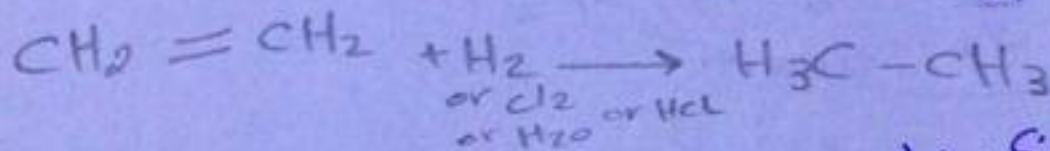 CH₂ = CH₂ + H₂ ⟶ H₃C - CH₃
or Cl₂ or HCl
or H₂O